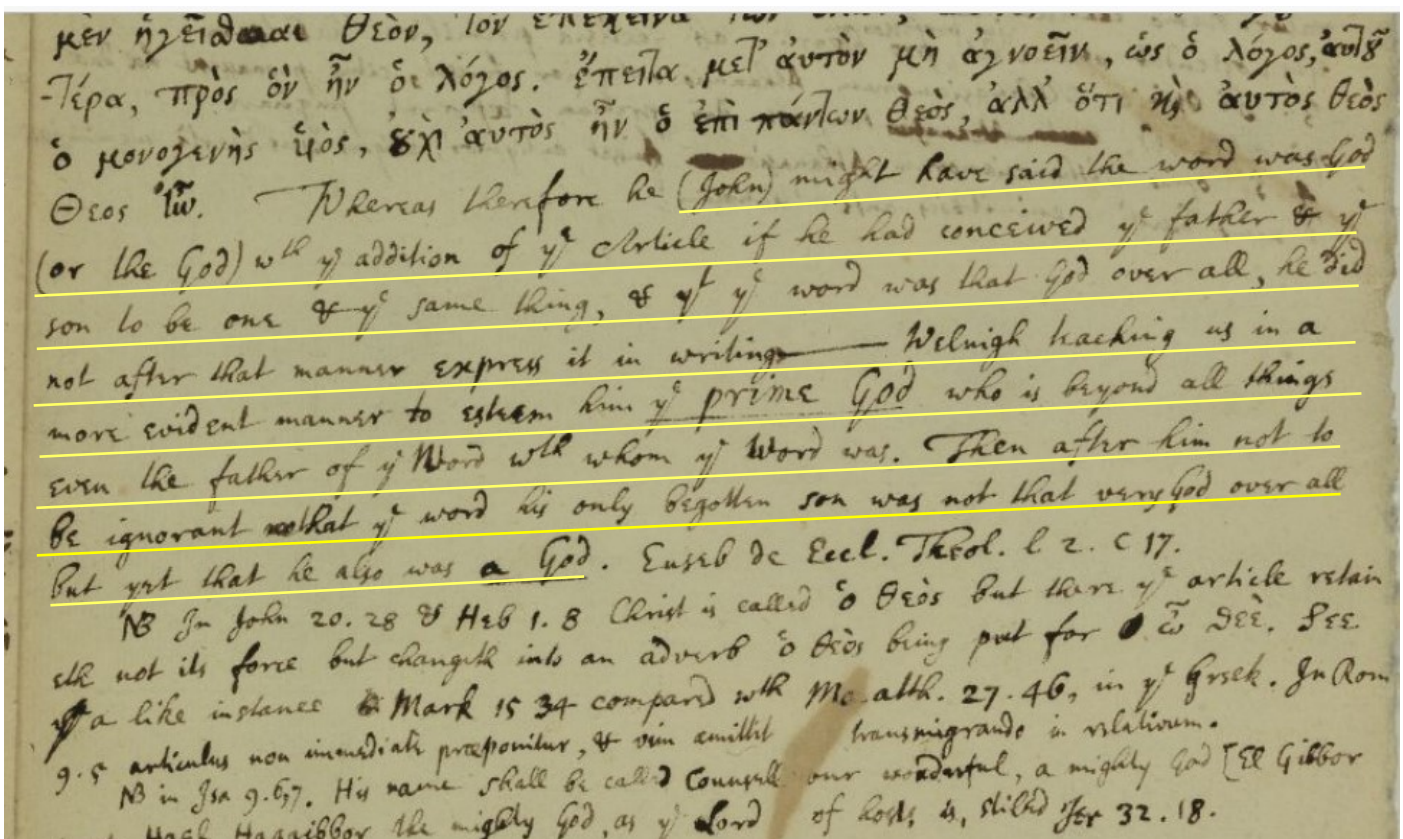 μὲν ἡγεῖσθαι Θεὸν, τὸν ἐπέκεινα
-τέρα, πρὸς ὃν ἦν ὁ λόγος. ἔπειτα μετ' ἀυτὸν μὴ ἀγνοεῖν, ὡς ὁ λόγος, ἀυτȣ͂
ὁ μονογενὴς ὑιὸς, ȣ̓χὶ ἀυτὸς ἦν ὁ ἐπὶ πάντων Θεὸς, ἀλλ' ὅτι ϗ ἀυτὸς θεὸς
Θεος ἦν. Whereas therefore he (John) might have said the word was God
(or the God) wth ye addition of ye Article if he had conceived ye father & ye
son to be one & ye same thing, & yt ye word was that God over all, he did
not after that manner express it in writing —— Welnigh teaching us in a
more evident manner to esteem him ye prime God who is beyond all things
even the father of ye Word wth whom ye Word was. Then after him not to
be ignorant that ye word his only begotten son was not that very God over all
but yet that he also was a God. Euseb de Eccl. Theol. l 2. c 17.
NB In John 20. 28 & Heb 1. 8 Christ is called ὁ θεὸς but there ye article retain
eth not its force but changeth into an adverb ὁ θεὸς being put for ὦ θεὲ. See
a like instance Mark 15 34 compared wth Matth. 27. 46, in ye Greek. In Rom
9. 5 articulus non immediate præponitur, & vim amittit transmigrando in relativum.
NB in Isa 9. 6,7. His name shall be called Counsellour wonderful, a mighty God [El Gibbor
Haggibbor the mighty God, as ye Lord of hosts is, stiled Jer 32. 18.